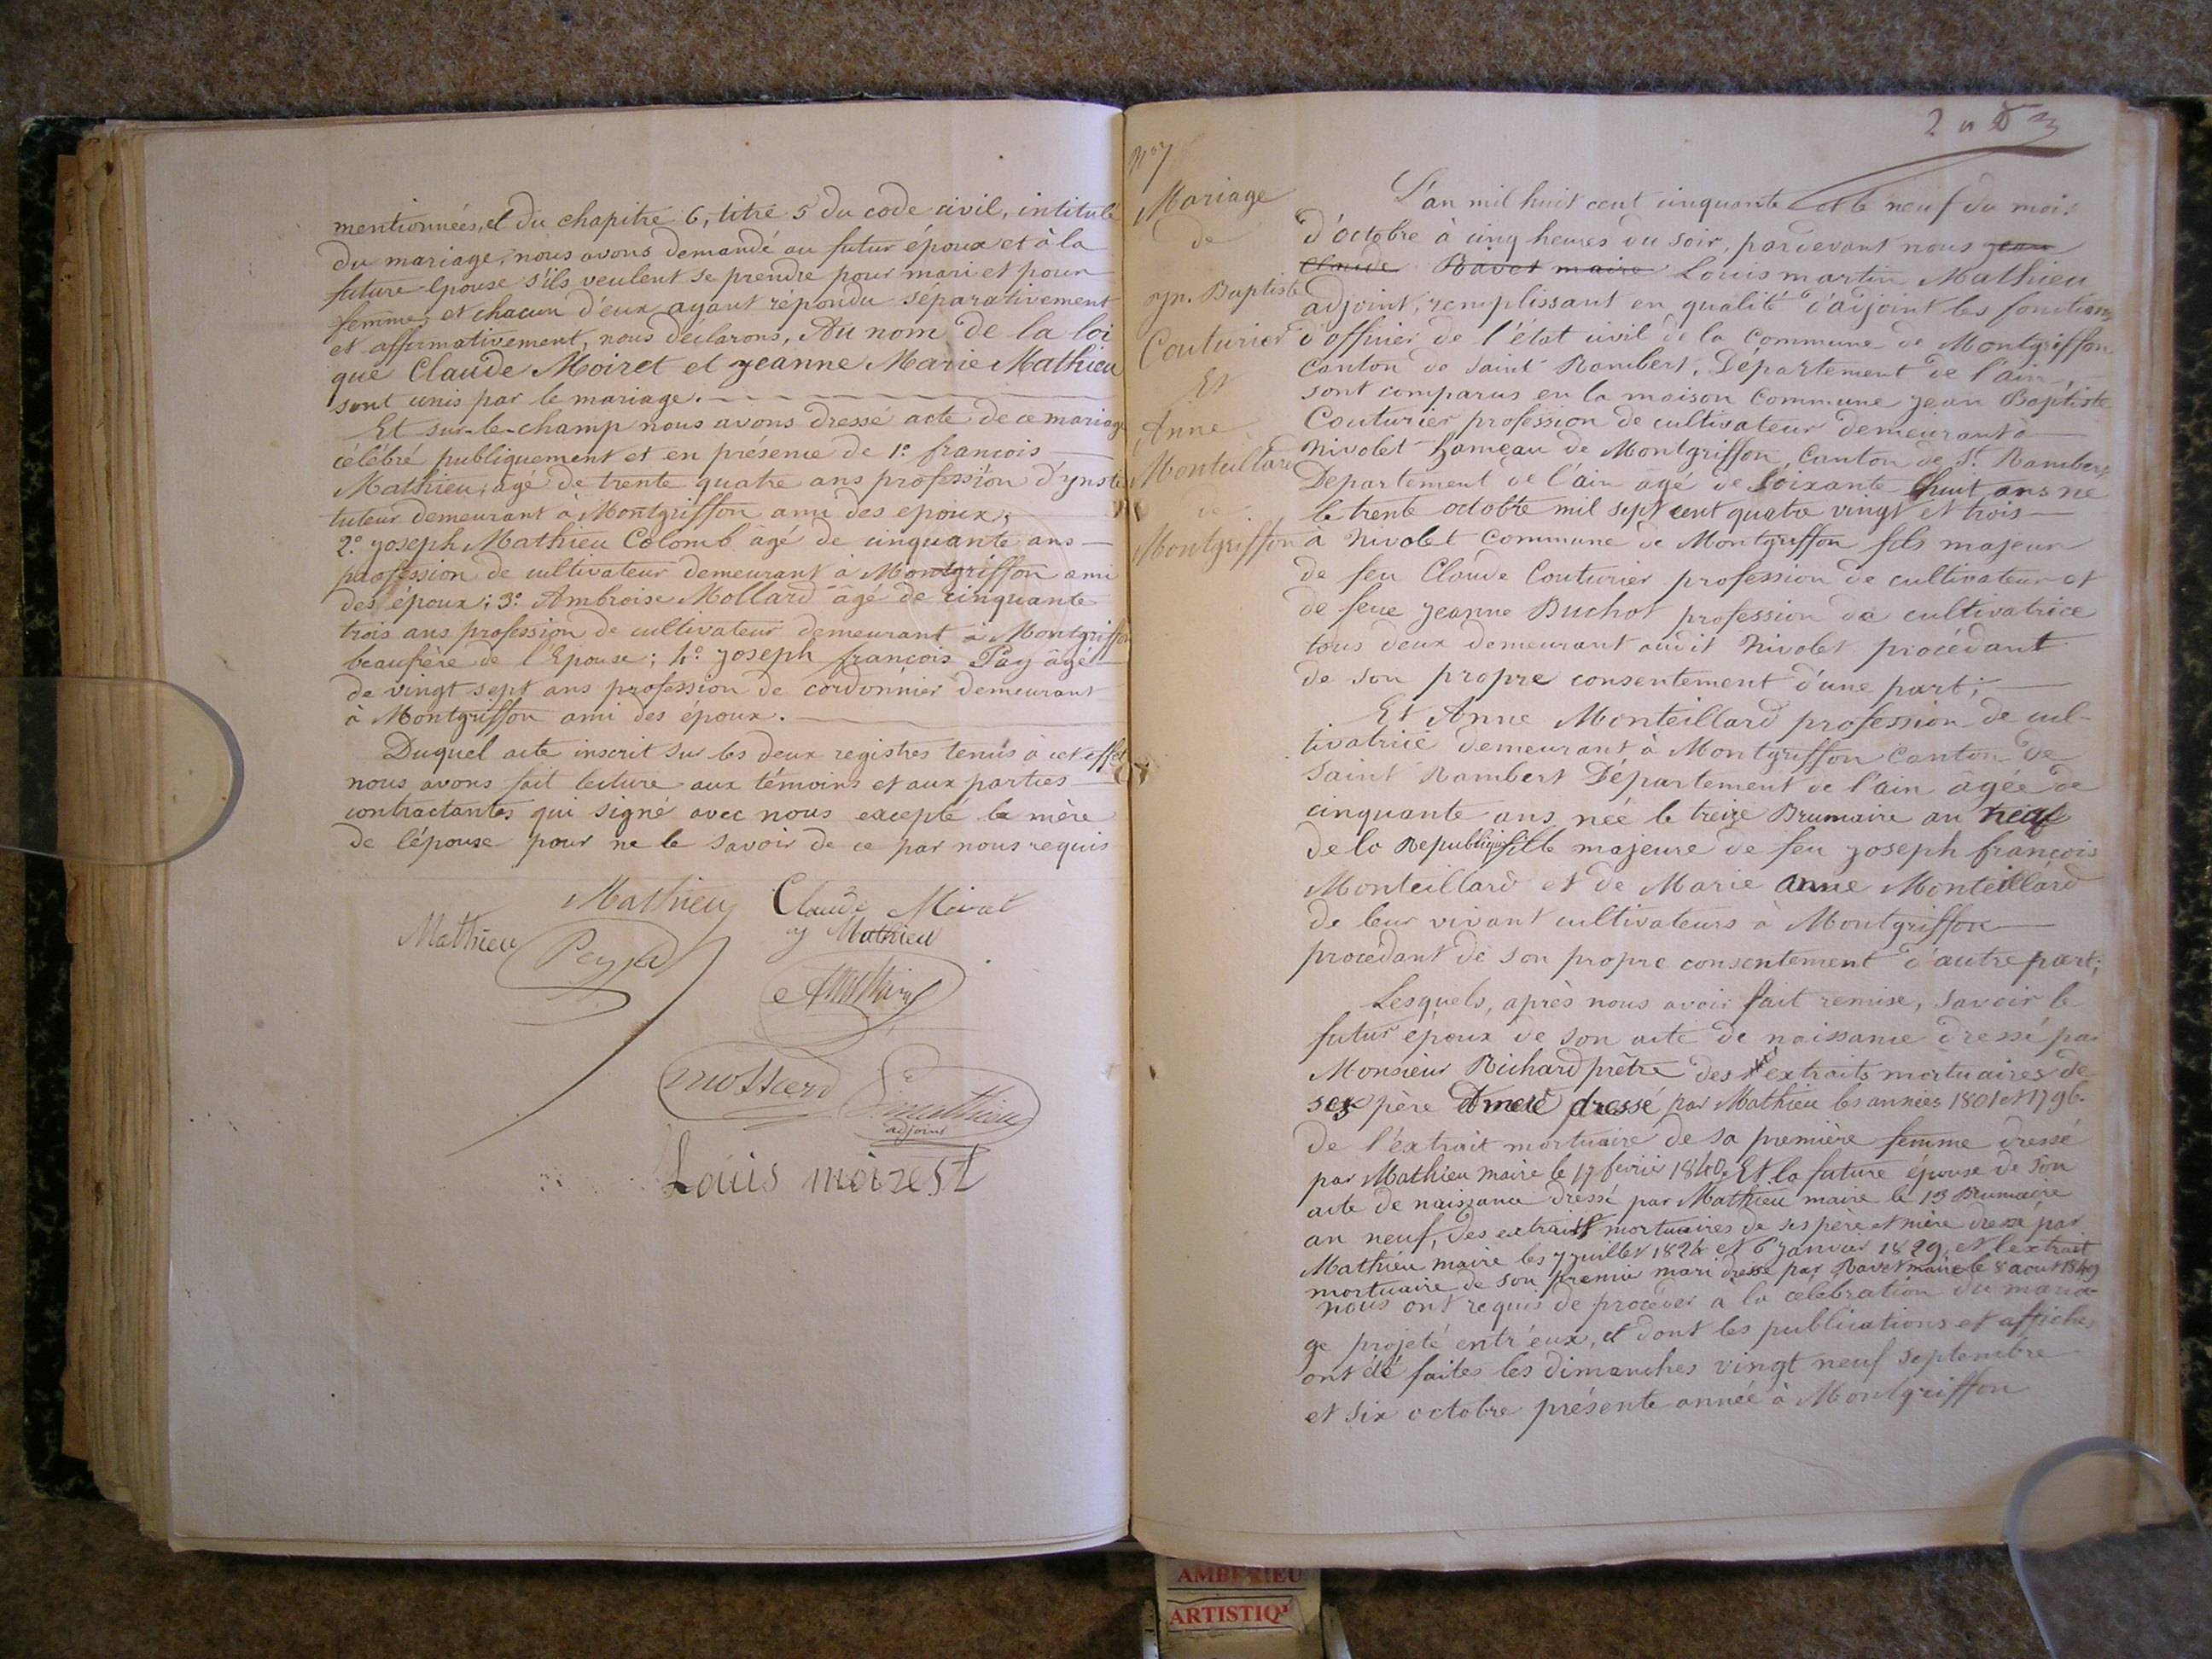 mentionnées, et du chapitre 6, titre 5 du code civil, intitulé
du mariage, nous avons demandé au futur époux et à la
future épouse s'ils veulent se prendre pour mari et pour
femme; et chacun d'eux ayant répondu séparativement
et affirmativement, nous déclarons, Au nom de la loi
que Claude Moiret et Jeanne Marie Mathieu
sont unis par le mariage.
Et sur-le-champ nous avons dressé acte de ce mariage
célébré publiquement et en présence de 1º. francois
Mathieu, agé de trente quatre ans profession d'ynsti
tuteur demeurant à Montgriffon ami des epoux;
2º. Joseph Mathieu Colomb âgé de cinquante ans
profession de cultivateur demeurant à Montgriffon ami
des époux; 3º. Ambroise Mollard âgé de cinquante
trois ans profession de cultivateur demeurant à Montgriffon
beaufrère de l'Epouse; 4º. Joseph françois Pay âgé
de vingt sept ans profession de cordonnier demeurant
à Montgriffon ami des époux.
Duquel acte inscrit sur les deux registres tenus à cet effet
nous avons fait lecture aux témoins et aux parties
contractantes qui signé avec nous excepté la mère
de l'épouse pour ne le savoir de ce par nous requis
Mathieu Claude
Mathieu Mathieu
mollard mathieu
adjoint
Louis moirest
Nº 7
Mariage
de
Jn. Baptiste
Couturier
Et
Anne
Monteillard
de
Montgriffon
L'an mil huit cent cinquante et le neuf du mois
d'octobre à cinq heures du soir, pardevant nous Jean
Claude Ravet maire Louis martin Mathieu
adjoint, remplissant en qualité d'adjoint les fonctions
d'officier de l'état civil de la commune de Montgriffon
canton de Saint Rambert, Département de l'ain,
sont comparus en la maison Commune Jean Baptiste
Couturier profession de cultivateur demeurant à
Nivolet hameau de Montgriffon, Canton de St. Rambert,
Departement de l'ain âgé de soixante huit ans ne
le trente octobre mil sept cent quatre vingt et trois
à Nivolet Commune de Montgriffon fils majeur
de feu Claude Couturier profession de cultivateur et
de feue Jeanne Buchot profession de cultivatrice
tous deux demeurant audit Nivolet procédant
de son propre consentement d'une part;
Et Anne Monteillard profession de cul-
tivatrice demeurant à Montgriffon Canton de
Saint Rambert Département de l'ain âgée de
cinquante ans née le treize Brumaire an neuf
de la Republique fille majeure de feu Joseph françois
Monteillard et de Marie Anne Monteillard
de leur vivant cultivateurs à Montgriffon
procédant de son propre consentement d'autre part;
Lesquels, après nous avoir fait remise, savoir le
futur époux de son acte de naissance dressé par
Monsieur Richard prêtre des extraits mortuaires de
ses père et mere dressé par Mathieu les années 1801 et 1796.
de l'extrait mortuaire de sa première femme dressé
par Mathieu maire le 17 fevrier 1840, Et la future épouse de son
acte de naissance dressé par Mathieu maire le 13 Brumaire
an neuf, des extraits mortuaires de ses père et mère dressé par
Mathieu maire les 7 juillet 1824 et 6 janvier 1829, et l'extrait
mortuaire de son premier mari dressé par Ravet maire le 8 aout 1849
nous ont requis de procéder a la célébration du maria-
ge projeté entr'eux, et dont les publications et affiches
ont été faites les dimanches vingt neuf septembre
et six octobre présente année à Montgriffon
AMBERIEU
ARTISTIQU